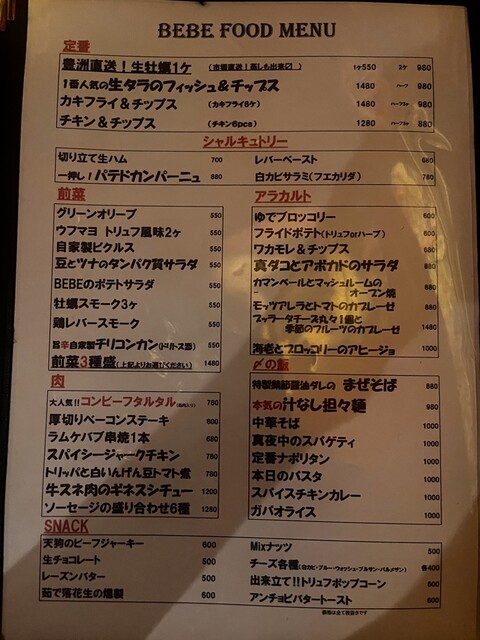 BEBE FOOD MENU
定番
豊洲直送！生牡蠣1ケ (市場直送！蒸しも出来〼) 1ケ550 2ケ 980
1番人気の生タラのフィッシュ＆チップス 1480 ハーフ 980
カキフライ＆チップス (カキフライ6ケ) 1480 980
チキン＆チップス (チキン6pcs) 1280 880
シャルキュトリー
切り立て生ハム 700
一押し！パテドカンパーニュ 880
レバーペースト 680
白カビサラミ(フエカリダ) 780
前菜
グリーンオリーブ 550
ウフマヨ トリュフ風味2ヶ 550
自家製ピクルス 550
豆とツナのタンパク質サラダ 550
BEBEのポテトサラダ 550
牡蠣スモーク3ヶ 550
鶏レバースモーク 550
旨辛自家製チリコンカン(ドリトス添) 550
前菜3種盛(上記よりお選びください) 1480
アラカルト
ゆでブロッコリー 600
フライドポテト(トリュフorハーブ) 600
ワカモレ＆チップス 680
真ダコとアボカドのサラダ 880
カマンベールとマッシュルームの
オーブン焼 880
モッツアレラとトマトのカプレーゼ 880
ブッラータチーズ丸々1個と
季節のフルーツのカプレーゼ 1480
海老とブロッコリーのアヒージョ 1000
肉
大人気!!コンビーフタルタル 780
厚切りベーコンステーキ 600
ラムケバブ串焼1本 680
スパイシージャークチキン 780
トリッパと白いんげん豆トマト煮 780
牛スネ肉のギネスシチュー 1200
ソーセージの盛り合わせ6種 1280
〆の飯
特製鶏節醤油ダレの まぜそば 880
本気の汁なし担々麺 980
中華そば 1000
真夜中のスパゲティ 1000
定番ナポリタン 1000
本日のパスタ 1000
スパイスチキンカレー 1000
ガパオライス 1000
SNACK
天狗のビーフジャーキー 600
生チョコレート 500
レーズンバター 500
茹で落花生の燻製 600
Mixナッツ 500
チーズ各種(白カビ・ブルー・ウォッシュ・ブルサン・パルメザン) 各400
出来立て!!トリュフポップコーン 600
アンチョビバタートースト 600
価格は全て税抜きです